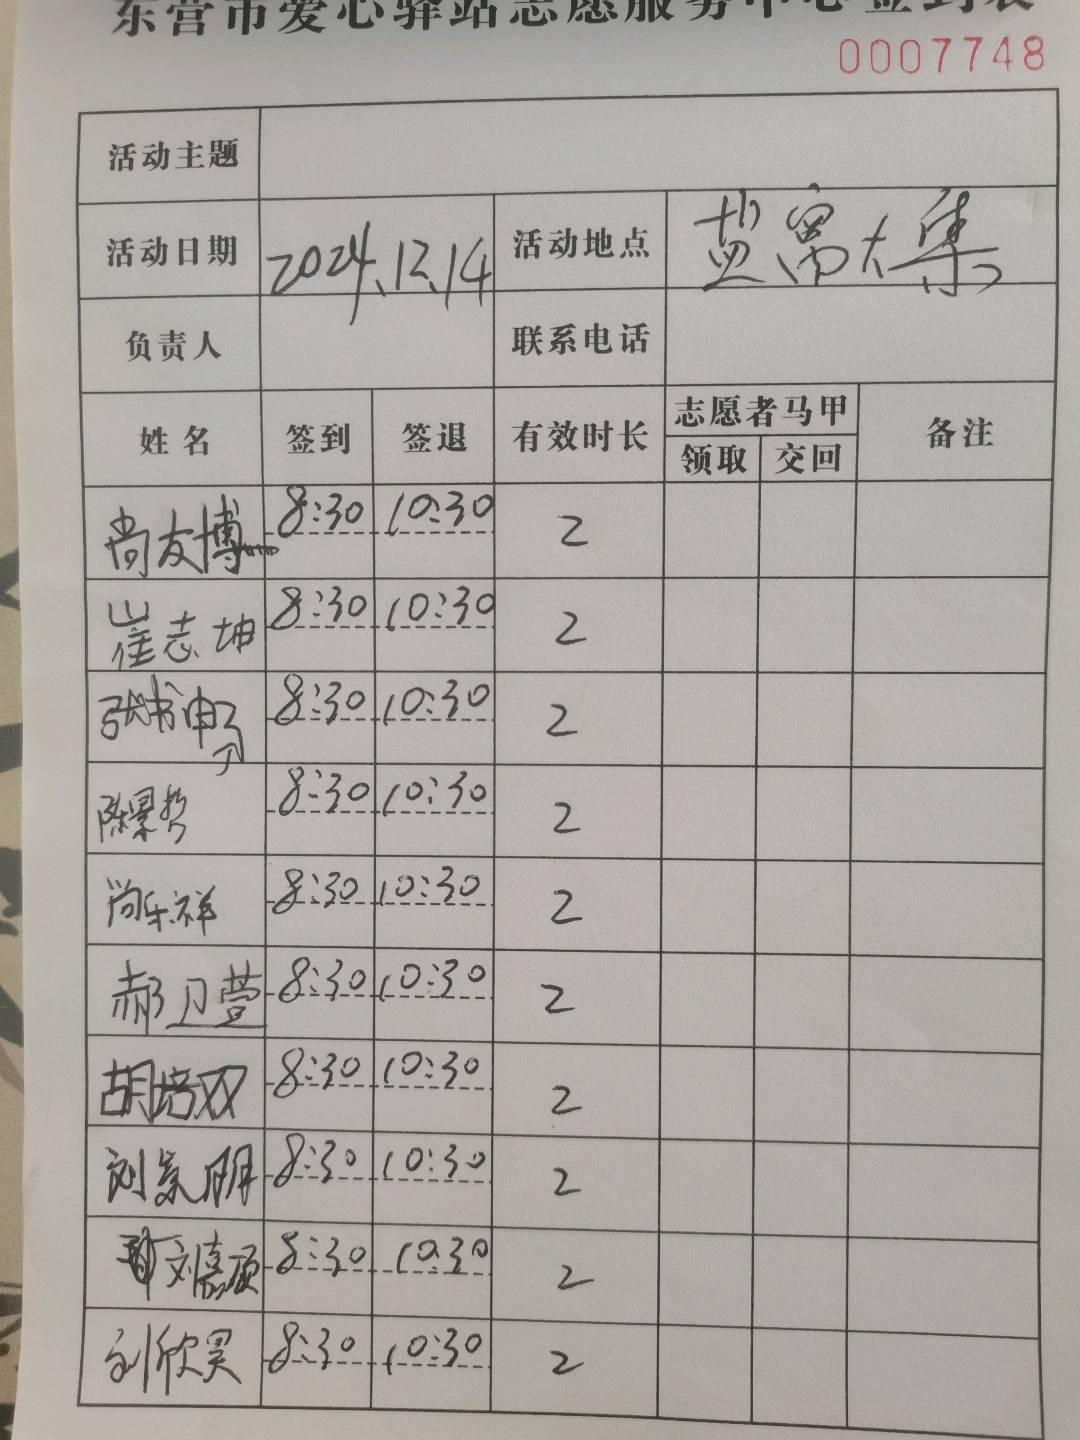 东营市爱心驿站志愿服务中心签到表
0007748
活动主题
活动日期 2024.12.14 活动地点 盐窝大集
负责人 联系电话
姓名 签到 签退 有效时长 志愿者马甲 备注
领取 交回
尚友博 8:30 10:30 2
崔志坤 8:30 10:30 2
张书 8:30 10:30 2
陈景哲 8:30 10:30 2
尚乐祥 8:30 10:30 2
郝卫萱 8:30 10:30 2
胡培双 8:30 10:30 2
刘景明 8:30 10:30 2
刘嘉硕 8:30 10:30 2
刘欣昊 8:30 10:30 2